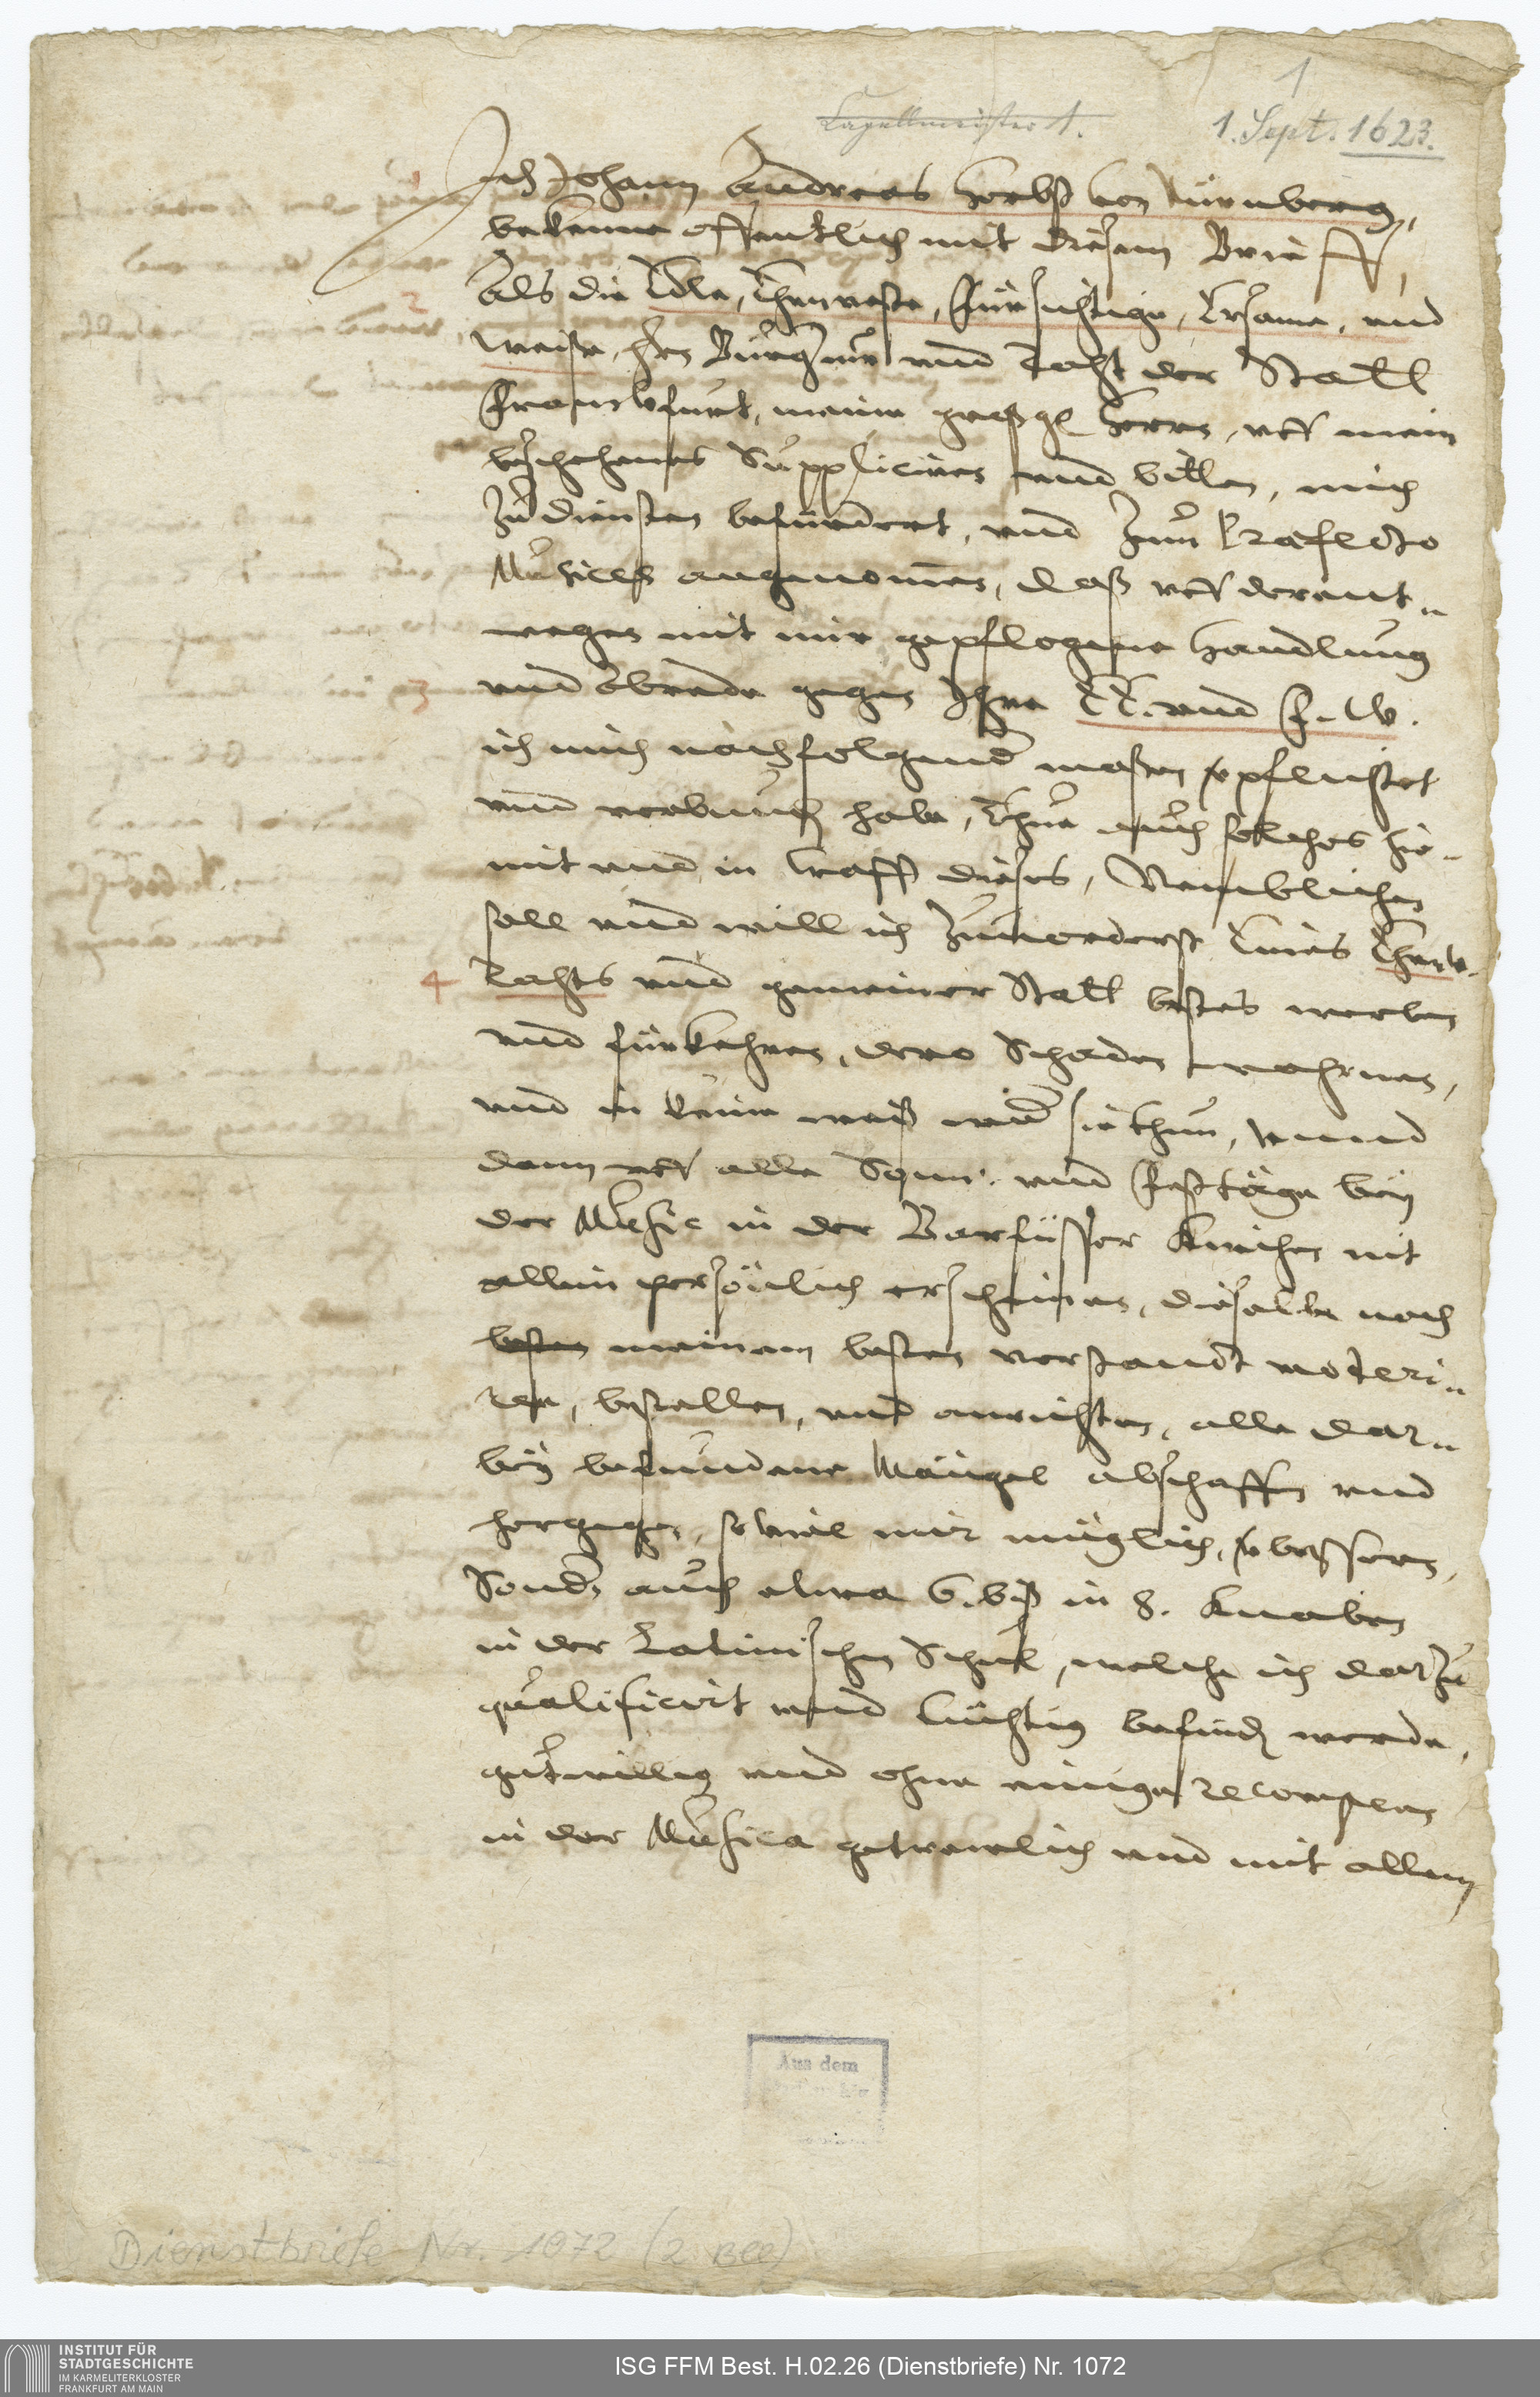 1
Capellmeister 1.
1. Sept. 1623.
Ich Johann Andreas Herbst von Nürnberg,
bekenne offentlich mit diesem Brieff,
Als die Edle, Ehrnveste, Fürsichtige, Ersame, und
Weise, Hrn Burgermr und Raht der Statt
Franckfurt, meine großgl Herrn, uff mein
beschehenes Suppliciren und bitten, mich
zu diensten befürdert, und zum Praefecto
Musices angenommen, daß uff derent„
wegen mit mir gepflogene Handlung
und Abrede gegen Ihre EE. und F. W.
ich mich nachfolgender maßen verpflichtet
und verbunden habe, Thue auch solches hie„
mit und in krafft dieses, Nemblichen
soll und will ich zuvorderst Eines Ehrb.
4 Rahts und gemeiner Statt bestes werben
und fürkehren, dero Schaden wahrnen,
und in keine weiß wider sie thun, unnd
dann uff alle Sonn- und Festtäge bey
der Music in der Barfüsser Kirchen nit
allein persönlich erscheinen, dieselbe nach
besten meinem besten verstandt moderi„
ren, bestellen, und anrichten, alle dar„
bey befundene Mängel abschaffen und
hergegen, so viel mir müglich, verbessern,
Sondern auch etwa 6. biß in 8. Knaben
in der Latinischen Schul, welche ich darzu
qualificirt und tüchtig befinden werde,
gutwillig und ohne einige recompens
in der Musica getrewlich und mit allem
Aus dem
Dienstbriefe Nr. 1072 (2 Bll)
INSTITUT FÜR
STADTGESCHICHTE
IM KARMELITERKLOSTER
FRANKFURT AM MAIN
ISG FFM Best. H.02.26 (Dienstbriefe) Nr. 1072